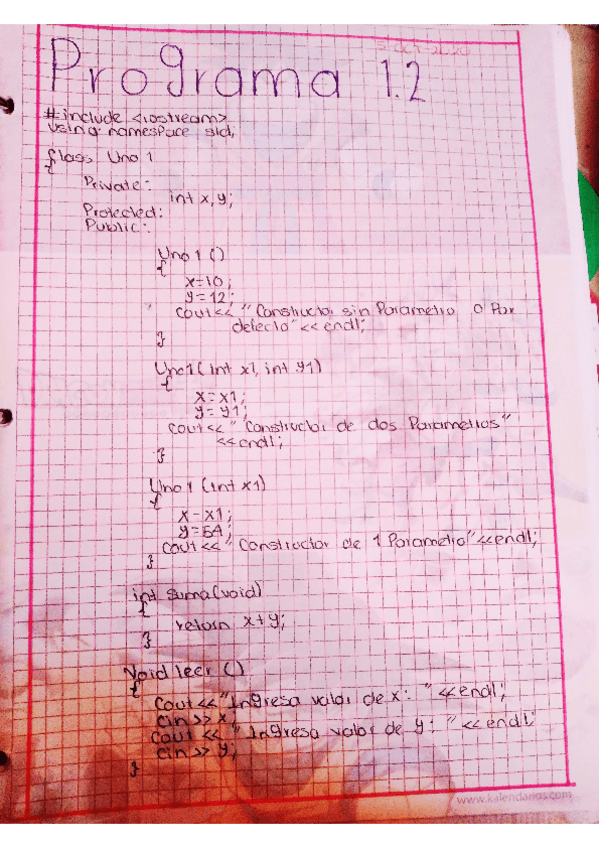 5-Oct-2020
Programa 1.2
#include <iostream>
using namespace std;
class Uno1
{
Private:
int x,y;
Protected:
Public:
Uno1 ()
{
x=10;
y=12;
cout<< "Constructor sin Parametro o Por
defecto"<<endl;
}
Uno1( int x1, int y1)
{
x=x1;
y=y1;
cout<< "Constructor de dos Parametros"
<<endl;
}
Uno1 (int x1)
{
x=x1;
y=54;
cout<< "Constructor de 1 Parametro"<<endl;
}
int suma(void)
{
return x+y;
}
Void leer ()
{
Cout<< "Ingresa valor de x: " <<endl;
Cin>> x;
Cout<< "Ingresa valor de y: " <<endl;
cin >> y;
}
www.kalendarios.com